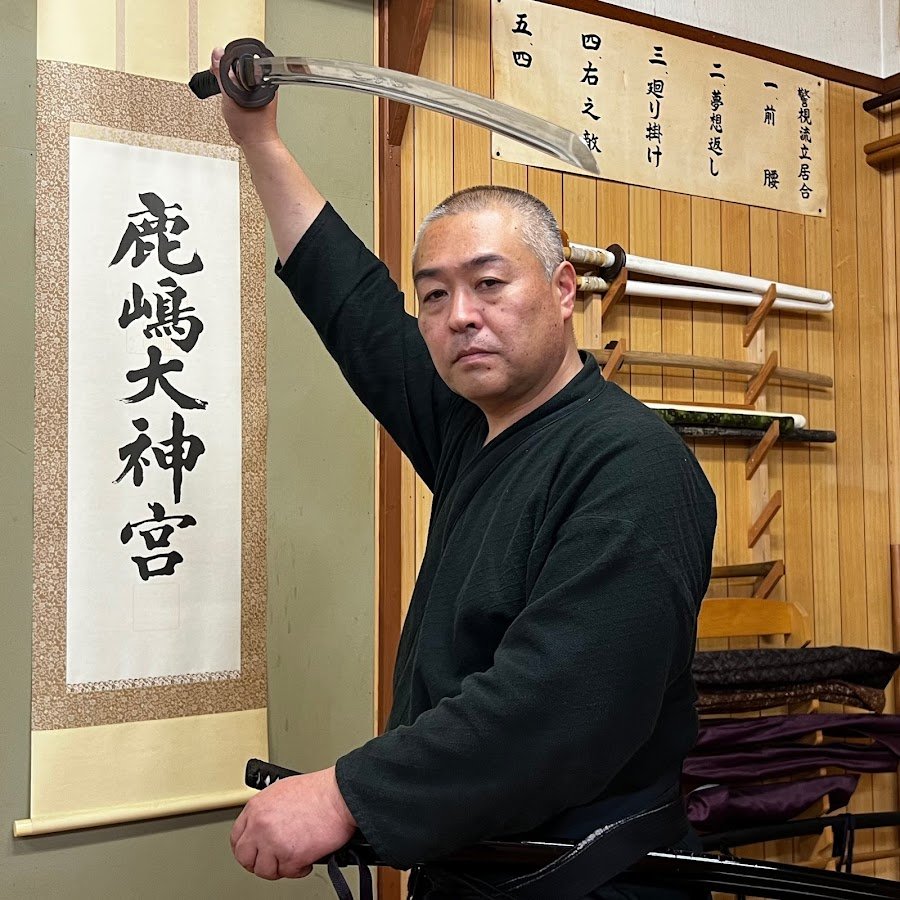 鹿嶋大神宮
警視流立居合
一 前腰
二 夢想返し
三 廻り掛け
四 右之敵
五 四